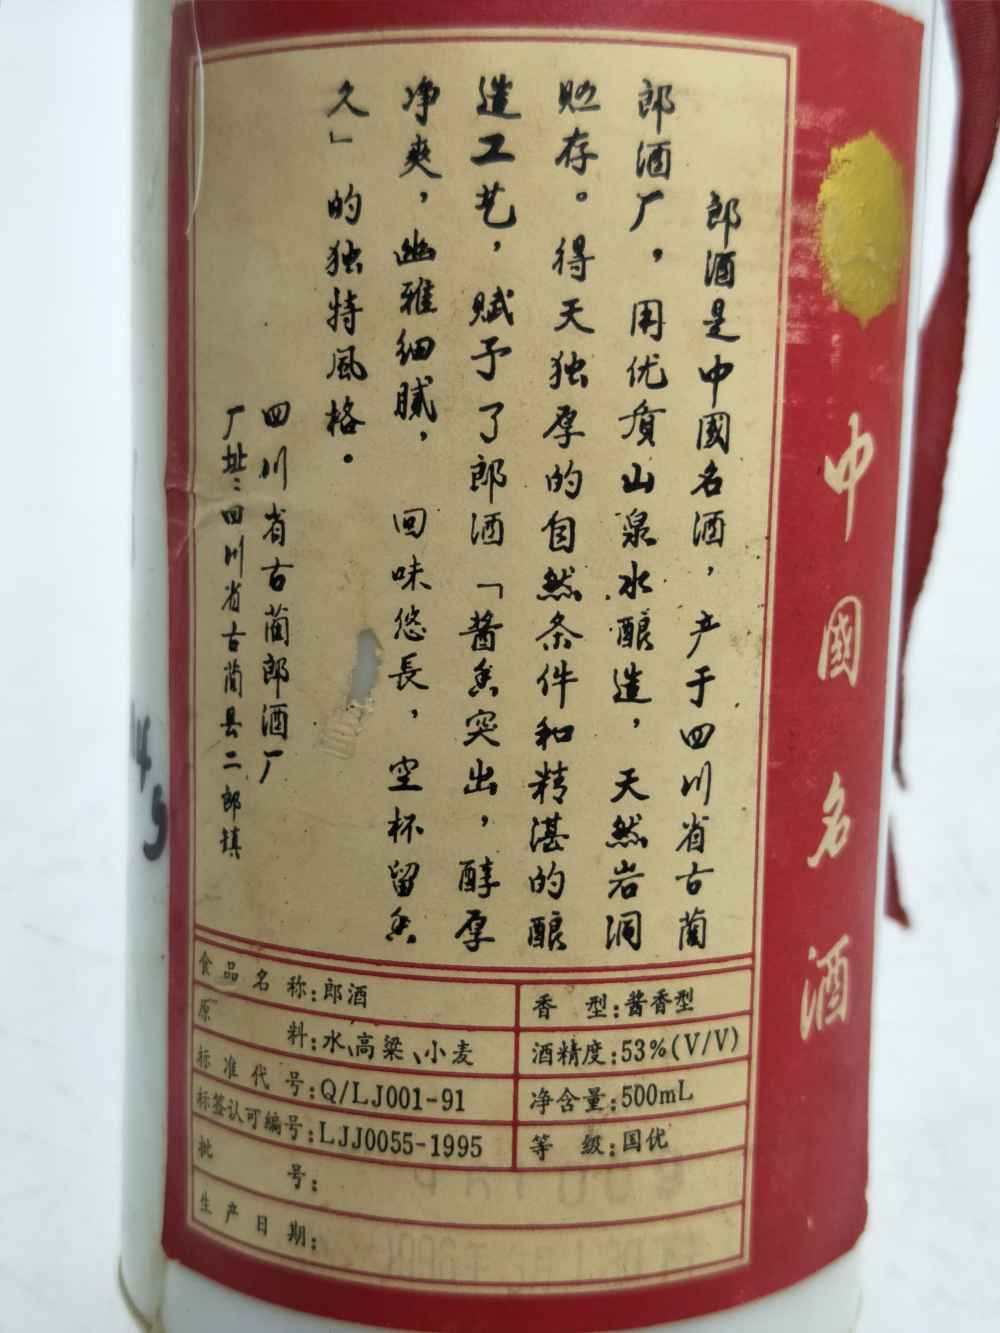 郎酒是中國名酒，产于四川省古蔺
郎酒厂，用优质山泉水酿造，天然岩洞
贮存。得天独厚的自然条件和精湛的酿
造工艺，赋予了郎酒「酱香突出，醇厚
净爽，幽雅细腻，回味悠長，空杯留香
久」的独特風格。
四川省古蔺郎酒厂
厂址：四川省古蔺县二郎镇
中國名酒
食品名称：郎酒
香型：酱香型
原料：水、高粱、小麦
酒精度：53%(V/V)
标准代号：Q/LJ001-91
净含量：500mL
标签认可编号：LJJ0055-1995
等级：国优
批号：
生产日期：